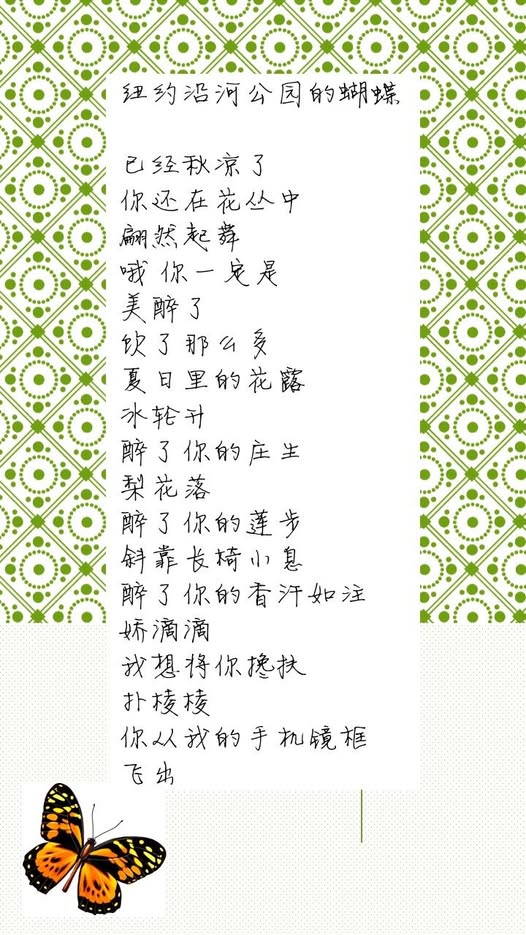 纽约沿河公园的蝴蝶
已经秋凉了
你还在花丛中
翩然起舞
哦 你一定是
美醉了
饮了那么多
夏日里的花露
冰轮升
醉了你的庄生
梨花落
醉了你的莲步
斜靠长椅小息
醉了你的香汗如注
娇滴滴
我想将你搀扶
扑棱棱
你从我的手机镜框
飞出